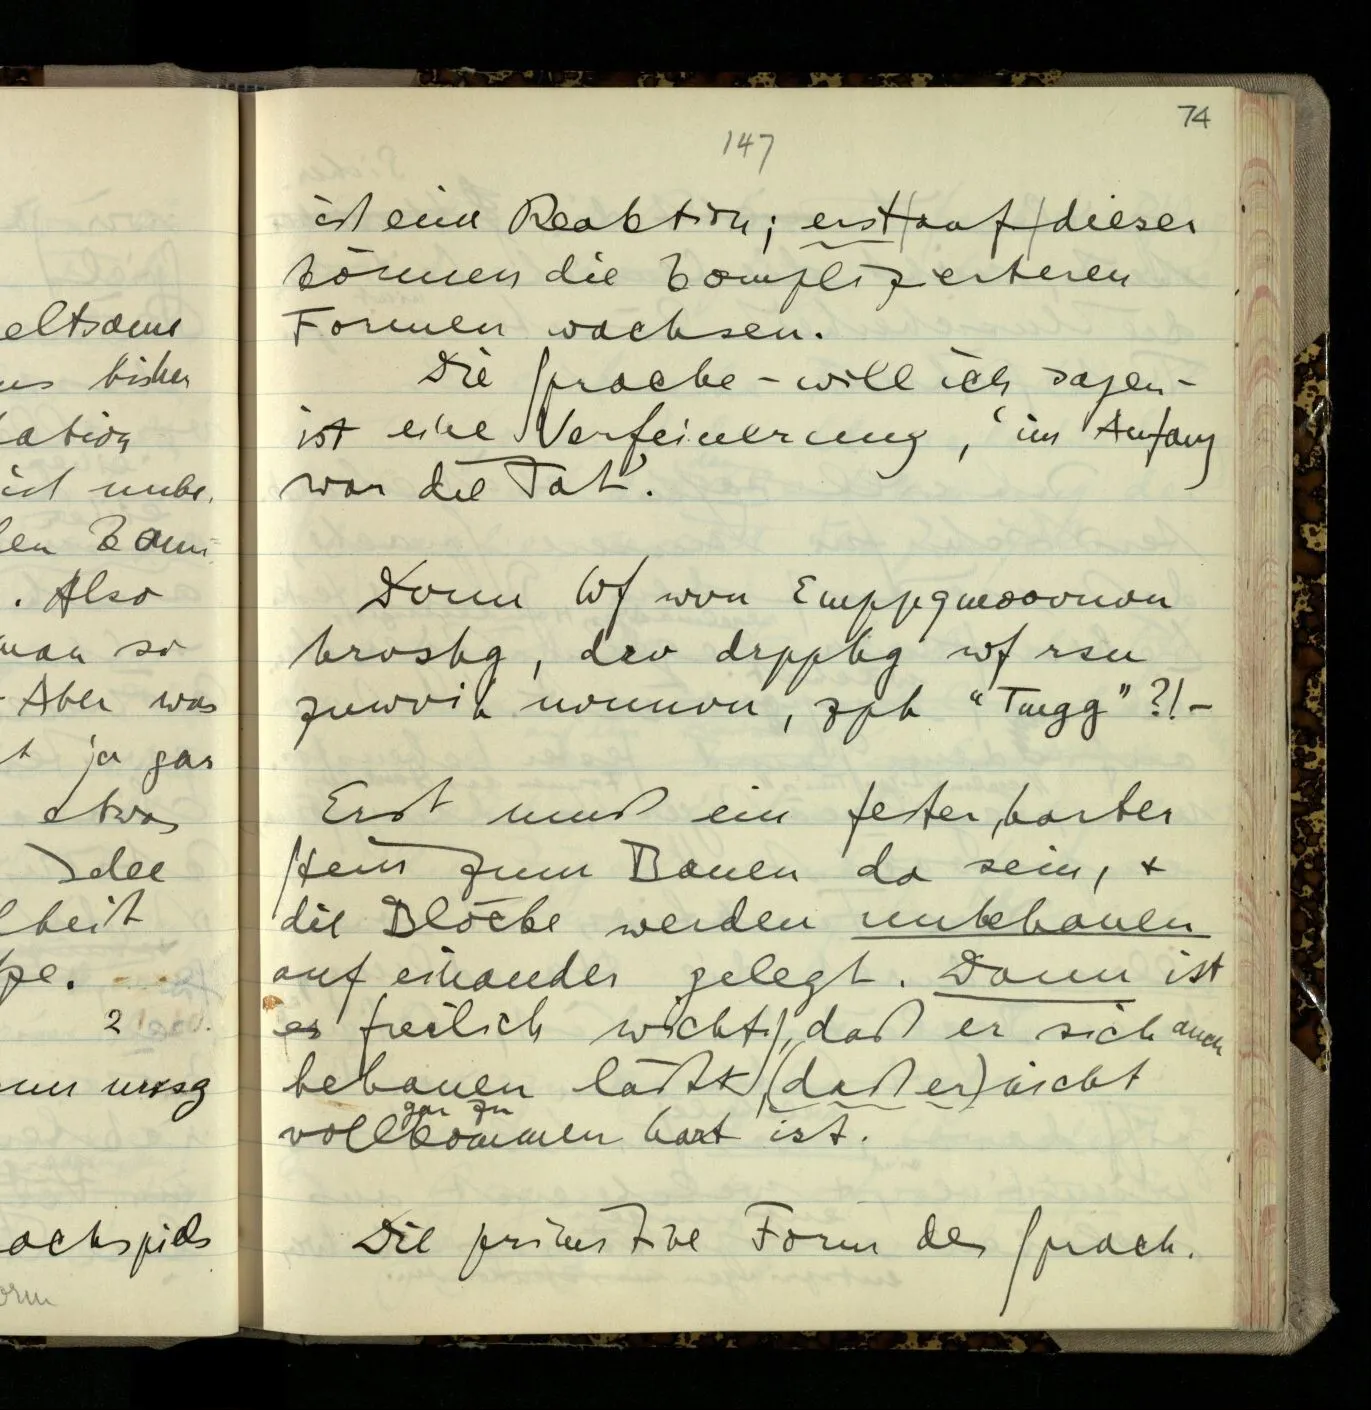 74
147
ist eine Reaktion; erst auf dieser
können die komplizierteren
Formen wachsen.
Die Sprache – will ich sagen –
ist eine Verfeinerung, ‘im Anfang
war die Tat’.
wf von
, drv drpphg wf rsn
nonnon, zph “Tmgg”?! –
Erst muß ein fester, harter
Stein zum Bauen da sein, +
die Blöcke werden unbehauen
auf einander gelegt. Dann ist
es freilich wichtig, daß er sich auch
behauen läßt, (daß er) nicht
gar zu
vollkommen hart ist.
Die primitive Form des Sprach.
eltsame
bisher
ation
ist unbe.
. Also
man so
– Aber was
ja gar
etwas
Idee
lheit
pe.
2
achspiels
orm